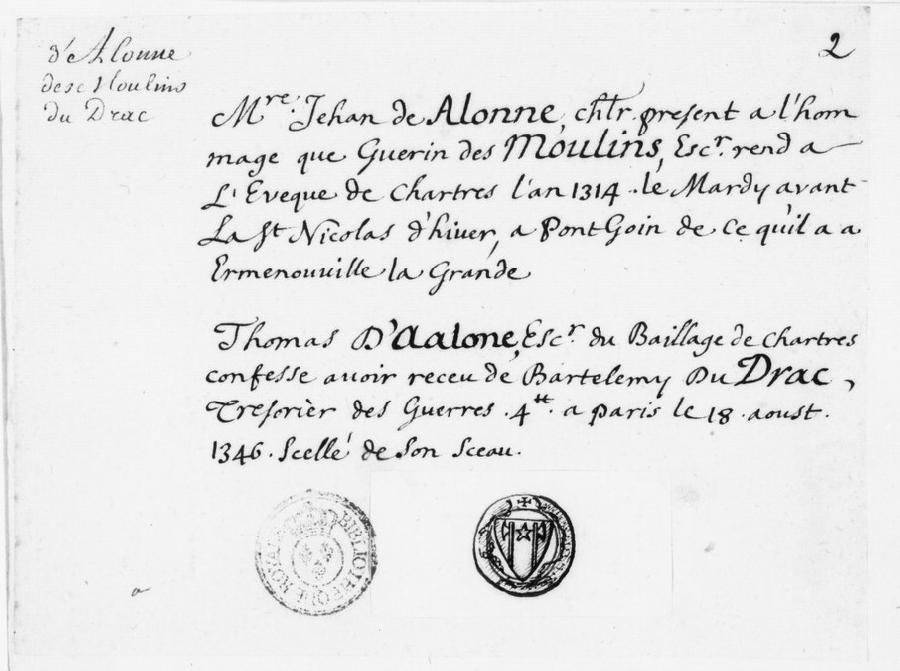 2
d'Alonne
des Moulins
du Drac
Mre. Jehan de Alonne, chlr. present a l'hom
mage que Guerin des Moulins, Escr. rend a
L'Eveque de Chartres l'an 1314. le Mardy avant
La st Nicolas d'hiver, a PontGoin de ce qu'il a a
Ermenouville la Grande
Thomas D'Aalone, Escr. du Baillage de Chartres
confesse avoir receu de Bartelemy Du Drac,
Tresorier des Guerres. 4tt. a Paris le 18. aoust.
1346. Scellé de Son Sceau.
BIBLIOTHEQUE ROYALE
a